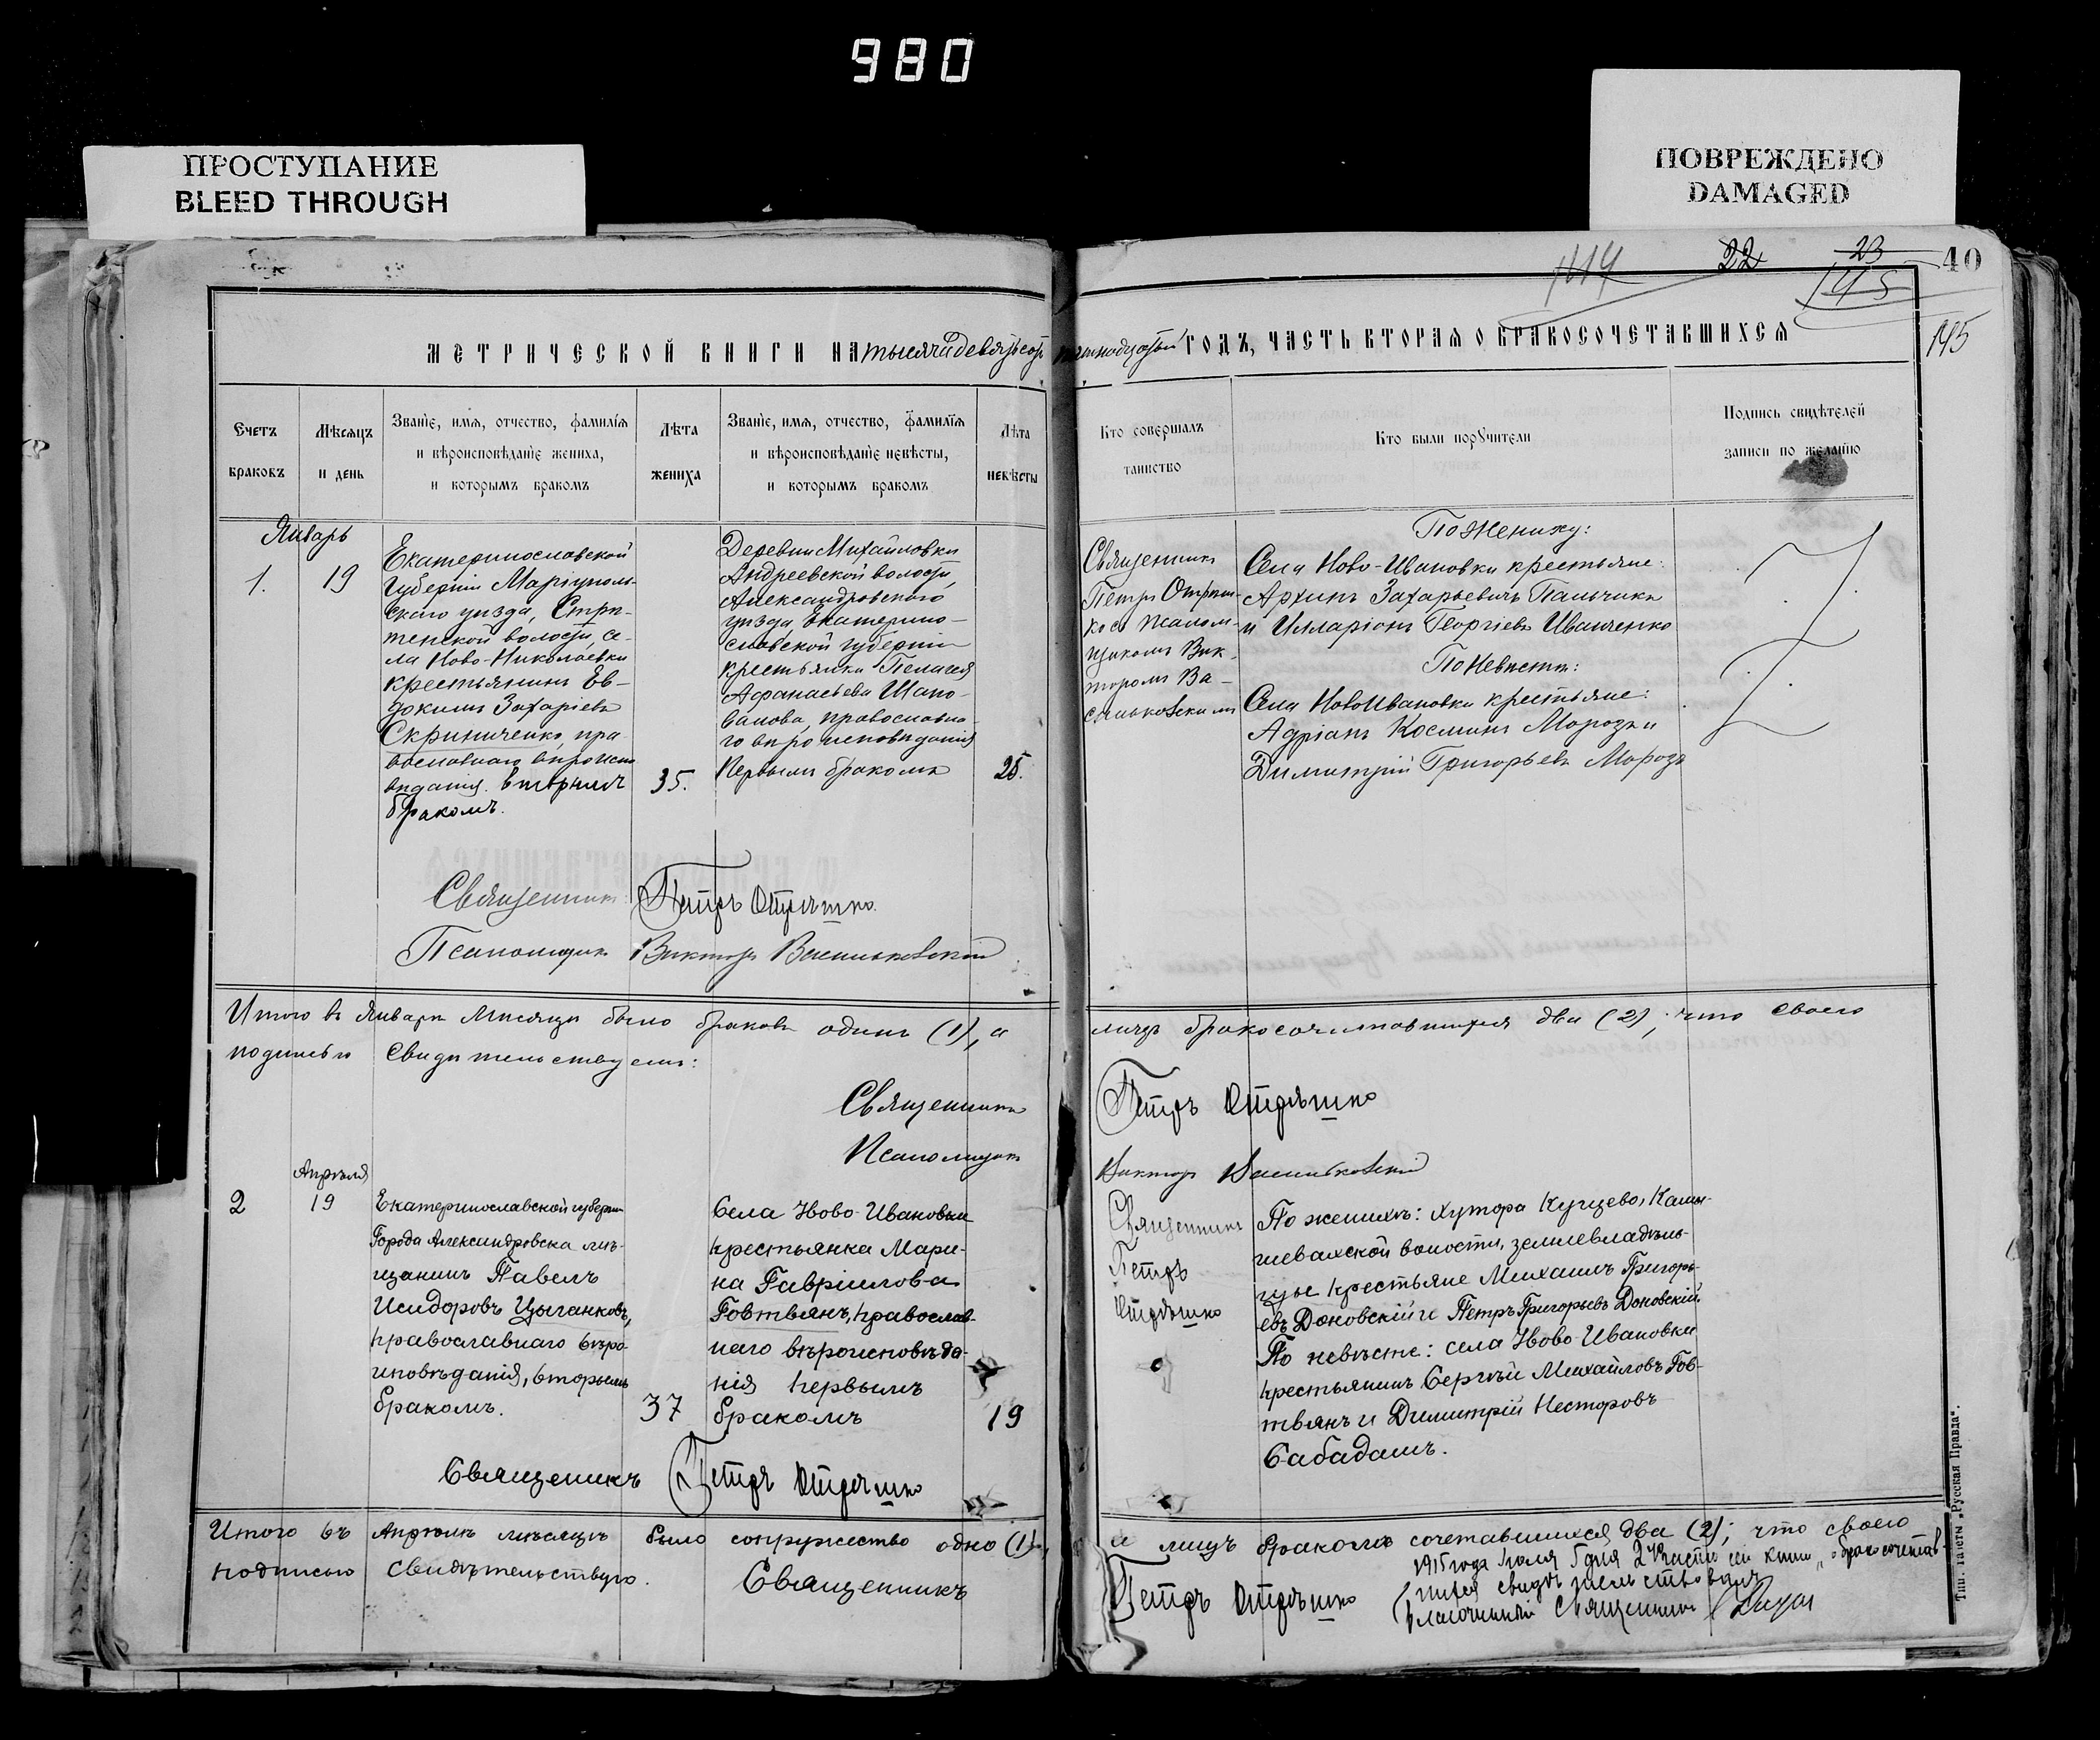 980
ПРОСТУПАНИЕ
BLEED THROUGH
ПОВРЕЖДЕНО
DAMAGED
22
23
40
145
195
МЕТРИЧЕСКОЙ КНИГИ НА тысяча девятьсот пятнадцатый ГОДЪ, ЧАСТЬ ВТОРАЯ О БРАКОСОЧЕТАВШИХСЯ
Счетъ
браковъ
Мѣсяцъ
и день
Званіе, имя, отчество, фамилія
и вѣроисповѣданіе жениха,
и которымъ бракомъ
Лѣта
жениха
Званіе, имя, отчество, фамилія
и вѣроисповѣданіе невѣсты,
и которымъ бракомъ
Лѣта
невѣсты
Кто совершалъ
таинство
Кто были поручители
Подпись свидѣтелей
записи по желанію
Январь
1.
19
Екатеринославской
губерніи Маріуполь-
скаго уѣзда, Стри-
тенской волости, се-
ла Ново-Николаевки
крестьянинъ Ев-
докимъ Захаріевъ
Скриниченко, пра-
вославнаго вѣроиспо
вѣданія. вторымъ
бракомъ.
35.
Деревни Михайловки
Андреевской волости,
Александровскаго
уѣзда, Екатерино-
славской губерніи
крестьянка Пелагея
Афанасьева Шапо-
валова, православна-
го вѣроисповѣданія
Первымъ бракомъ
25.
Священникъ
Петръ Отрѣш-
ко съ псалом-
щикомъ Вик-
торомъ Ва-
сильковскимъ
По Жениху:
Села Ново-Ивановки крестьяне:
Архипъ Захарьевичъ Пальчикъ
и Илларіонъ Георгіевъ Иванченко
По Невѣстѣ:
Села Ново Ивановки крестьяне:
Адріанъ Косминъ Морозъ и
Димитрій Григорьевъ Морозъ
Священникъ Петръ Отрѣшко.
Псаломщикъ Викторъ Васильковскій
Итого въ Январѣ Мѣсяцѣ было браковъ одинъ (1), а лицъ бракосочетавшихся два (2), что своею
подписью свидѣтельствуемъ:
Священникъ Петръ Отрѣшко
Псаломщикъ Викторъ Васильковскій
Апрѣля
2
19
Екатеринославской губерніи
Города Александровска мѣ-
щанинъ Павелъ
Исидоровъ Цыганковъ,
православнаго вѣро
исповѣданія, вторымъ
бракомъ.
37
Села Ново-Ивановки
крестьянка Мари-
на Гавріилова
Говтвянъ, православ-
наго вѣроисповѣда-
нія первымъ
бракомъ
19
Священникъ
Петръ
Отрѣшко
По женихѣ: хутора Кущево, Камы-
шевахской волости, землевладѣль-
цы крестьяне Михаилъ Григорь-
евъ Доновскій и Петръ Григорьевъ Доновскій.
По невѣстѣ: села Ново-Ивановки
крестьянинъ Сергѣй Михайловъ Гов-
твянъ и Димитрій Несторовъ
Сабадашъ.
Священникъ Петръ Отрѣшко
Итого въ Апрѣлѣ мѣсяцѣ было супружество одно (1), а лицъ бракомъ сочетавшихся два (2); что своею
подписью свидѣтельствую. Священникъ Петръ Отрѣшко
1915 года Іюля 5 дня 2ю часть сей книги „о бракосочетав-
шихся свидѣтельствовалъ
Благочинный Священникъ
Тип. газеты „Русская Правда".